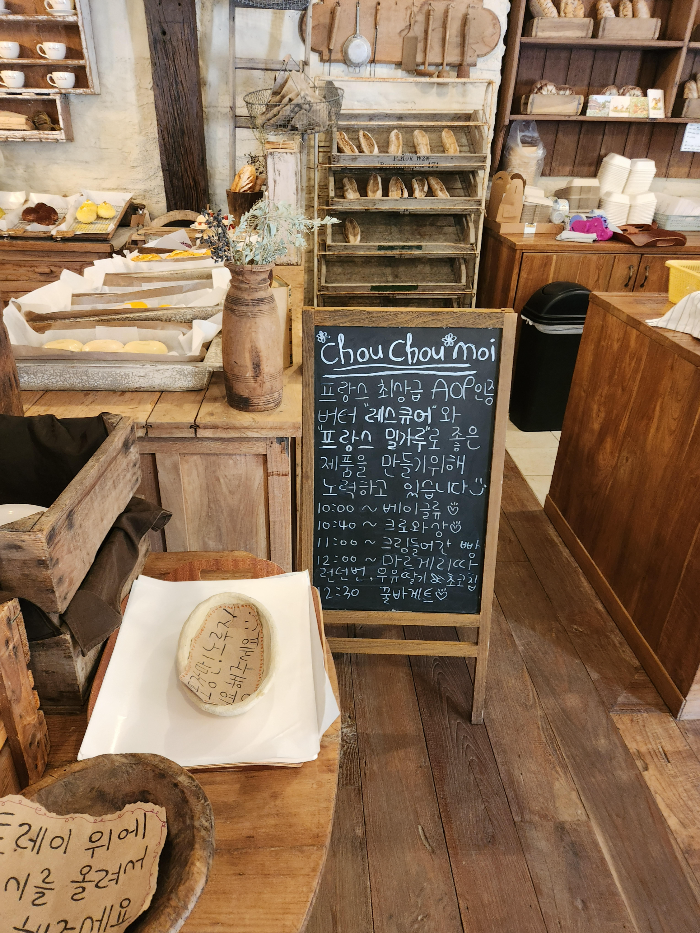 Chou Chou moi
프랑스 최상급 AOP인증
버터 "레스큐어"와
"프랑스 밀가루"로 좋은
제품을 만들기위해
노력하고 있습니다
10:00 ~ 베이글류
10:40 ~ 크로와상
11:00 ~ 크림들어간 빵
12:00 ~ 마르게리따
런던번, 우유딸기&초코집
12:30 꿀바게트
잠깐! 노루지
해주세요
트레이 위에
지를 올려서
해주세요